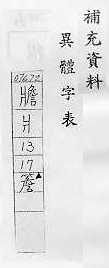 補充資料
異體字表
07672
爿
13
17